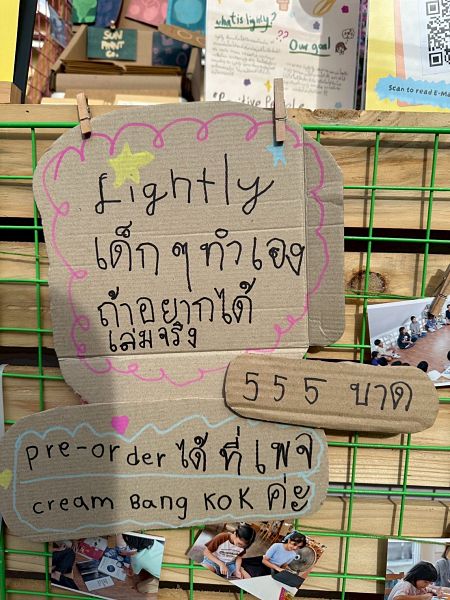 SUN
PRINT
CO.
what is lightly?
Our goal
Scan to read E-Ma
Lightly
เด็กๆทำเอง
ถ้าอยากได้
เล่มจริง
555 บาด
pre-order ได้ที่เพจ
cream Bang KOK ค่ะ